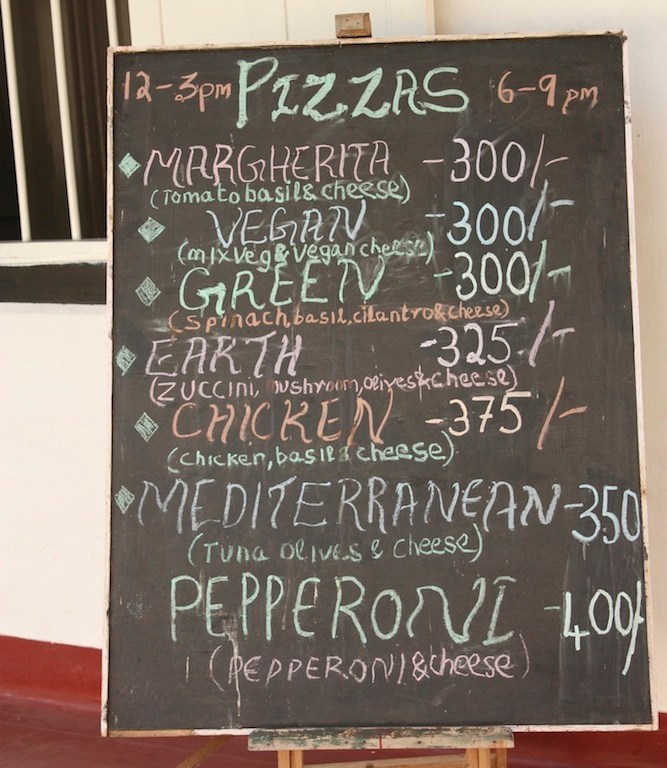 12-3pm PIZZAS 6-9pm
MARGHERITA -300/-
(Tomato basil & cheese)
VEGAN -300/-
(mix veg & vegan cheese)
GREEN -300/-
(spinach, basil, cilantro & cheese)
EARTH -325/-
(ZUCCINI, mushroom, olives & cheese)
CHICKEN -375/-
(chicken, basil & cheese)
MEDITERRANEAN -350
(Tuna olives & cheese)
PEPPERONI -400/
(PEPPERONI & cheese)